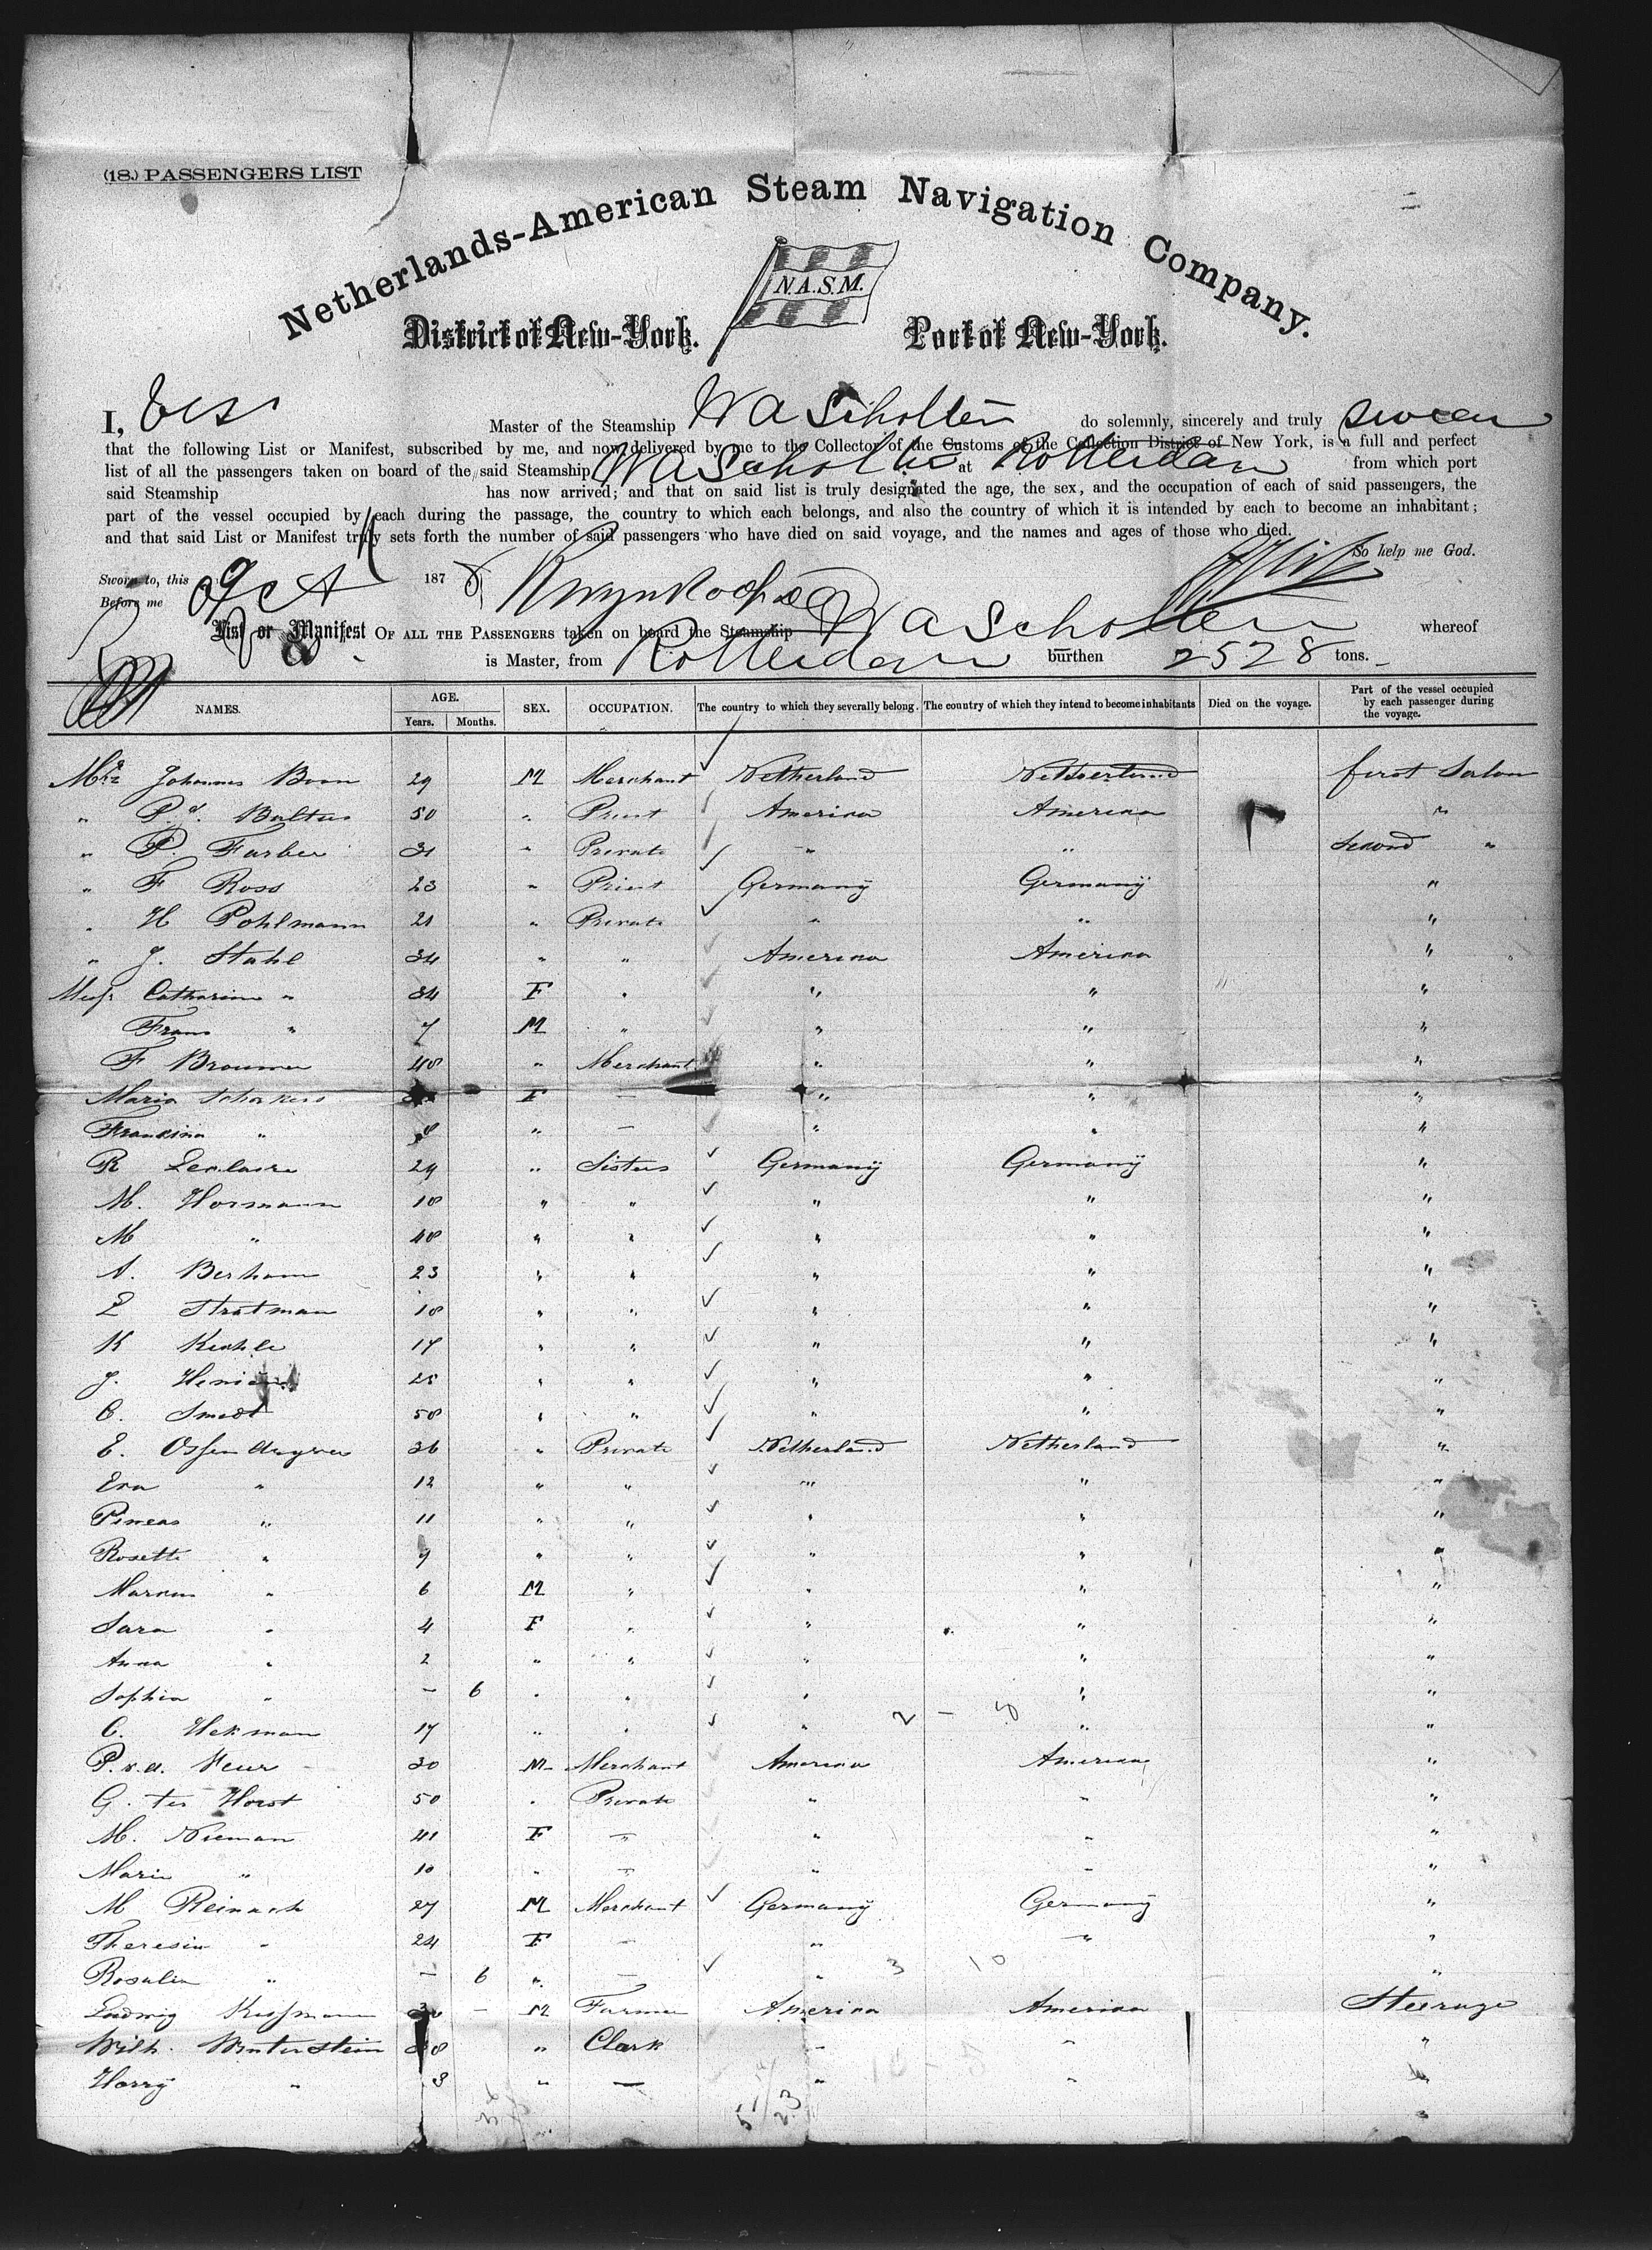 (18.) PASSENGERS LIST
Netherlands-American Steam Navigation Company.
N.A.S.M.
District of New-York. Port of New-York.
I, Master of the Steamship W A Scholten do solemnly, sincerely and truly swear
that the following List or Manifest, subscribed by me, and now delivered by me to the Collector of the Customs of the Collection District of New York, is a full and perfect
list of all the passengers taken on board of the said Steamship W A Scholten at Rotterdam from which port
said Steamship has now arrived; and that on said list is truly designated the age, the sex, and the occupation of each of said passengers, the
part of the vessel occupied by each during the passage, the country to which each belongs, and also the country of which it is intended by each to become an inhabitant;
and that said List or Manifest truly sets forth the number of said passengers who have died on said voyage, and the names and ages of those who died.
So help me God.
Sworn to, this 9 Oct 1878
Before me
List or Manifest OF ALL THE PASSENGERS taken on board the Steamship W A Scholten whereof
is Master, from Rotterdam burthen 2528 tons.
NAMES. AGE. Years. Months. SEX. OCCUPATION. The country to which they severally belong. The country of which they intend to become inhabitants Died on the voyage. Part of the vessel occupied by each passenger during the voyage.
Johannes Boon 29 M Merchant Netherland Netherland first Salon
" Baltus 50 " Priest America America "
" P. Farber 31 " Private " " Second "
" F Ross 23 " Priest Germany Germany "
" H Pohlmann 21 " Private " " "
" J. Stahl 34 " " America America "
Catharina " 34 F " " " "
Frans " 7 M " " " "
F Brouwer 48 " Merchant " " "
Maria F — " " "
Francina " " — " " "
R 29 " Sisters Germany Germany "
M. Horsmann 18 " " " " "
M " 48 " " " " "
A. 23 " " " " "
L Stratman 18 " " " " "
K 17 " " " " "
J. 25 " " " " "
C. Smedt 58 " " " " "
E. 36 " Private Netherland Netherland "
Eva " 12 " " " " "
Pineas " 11 " " " " "
Rosette " 9 " " " " "
Marcus " 6 M " " " "
Sara " 4 F " " " "
Anna " 2 " " " " "
Sophia " — 6 " " " " "
C. Hekman 17 " " " " "
P. v.d. 30 M Merchant America America "
G. ter Horst 50 " Private " " "
M. Nieman 41 F " " " "
Marie " 10 " " " " "
M Reinach 27 M Merchant Germany Germany "
Theresia " 24 F — " " "
Rosalia " — 6 " — " "
Ludwig — M Farmer America America Steerage
Wilh. Winterstein 38 " Clark " " "
Harry " 3 " — " " "